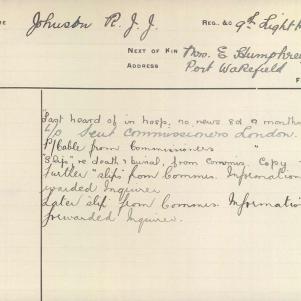 ME Johnson R. J. J. REG. &c 9th Light H
NEXT OF KIN Mrs. E Humphrey
ADDRESS Port Wakefield
F
"Last heard of in hosp, no news 8 months
L/o Sent Commissioners London.
P/Cable from Commissioners "
"Slip" re death & burial, from Commis. Copy
Further "slip" from Commis. Information
warded Inquirer
Later slip from Commis. Information
forwarded Inquirer.